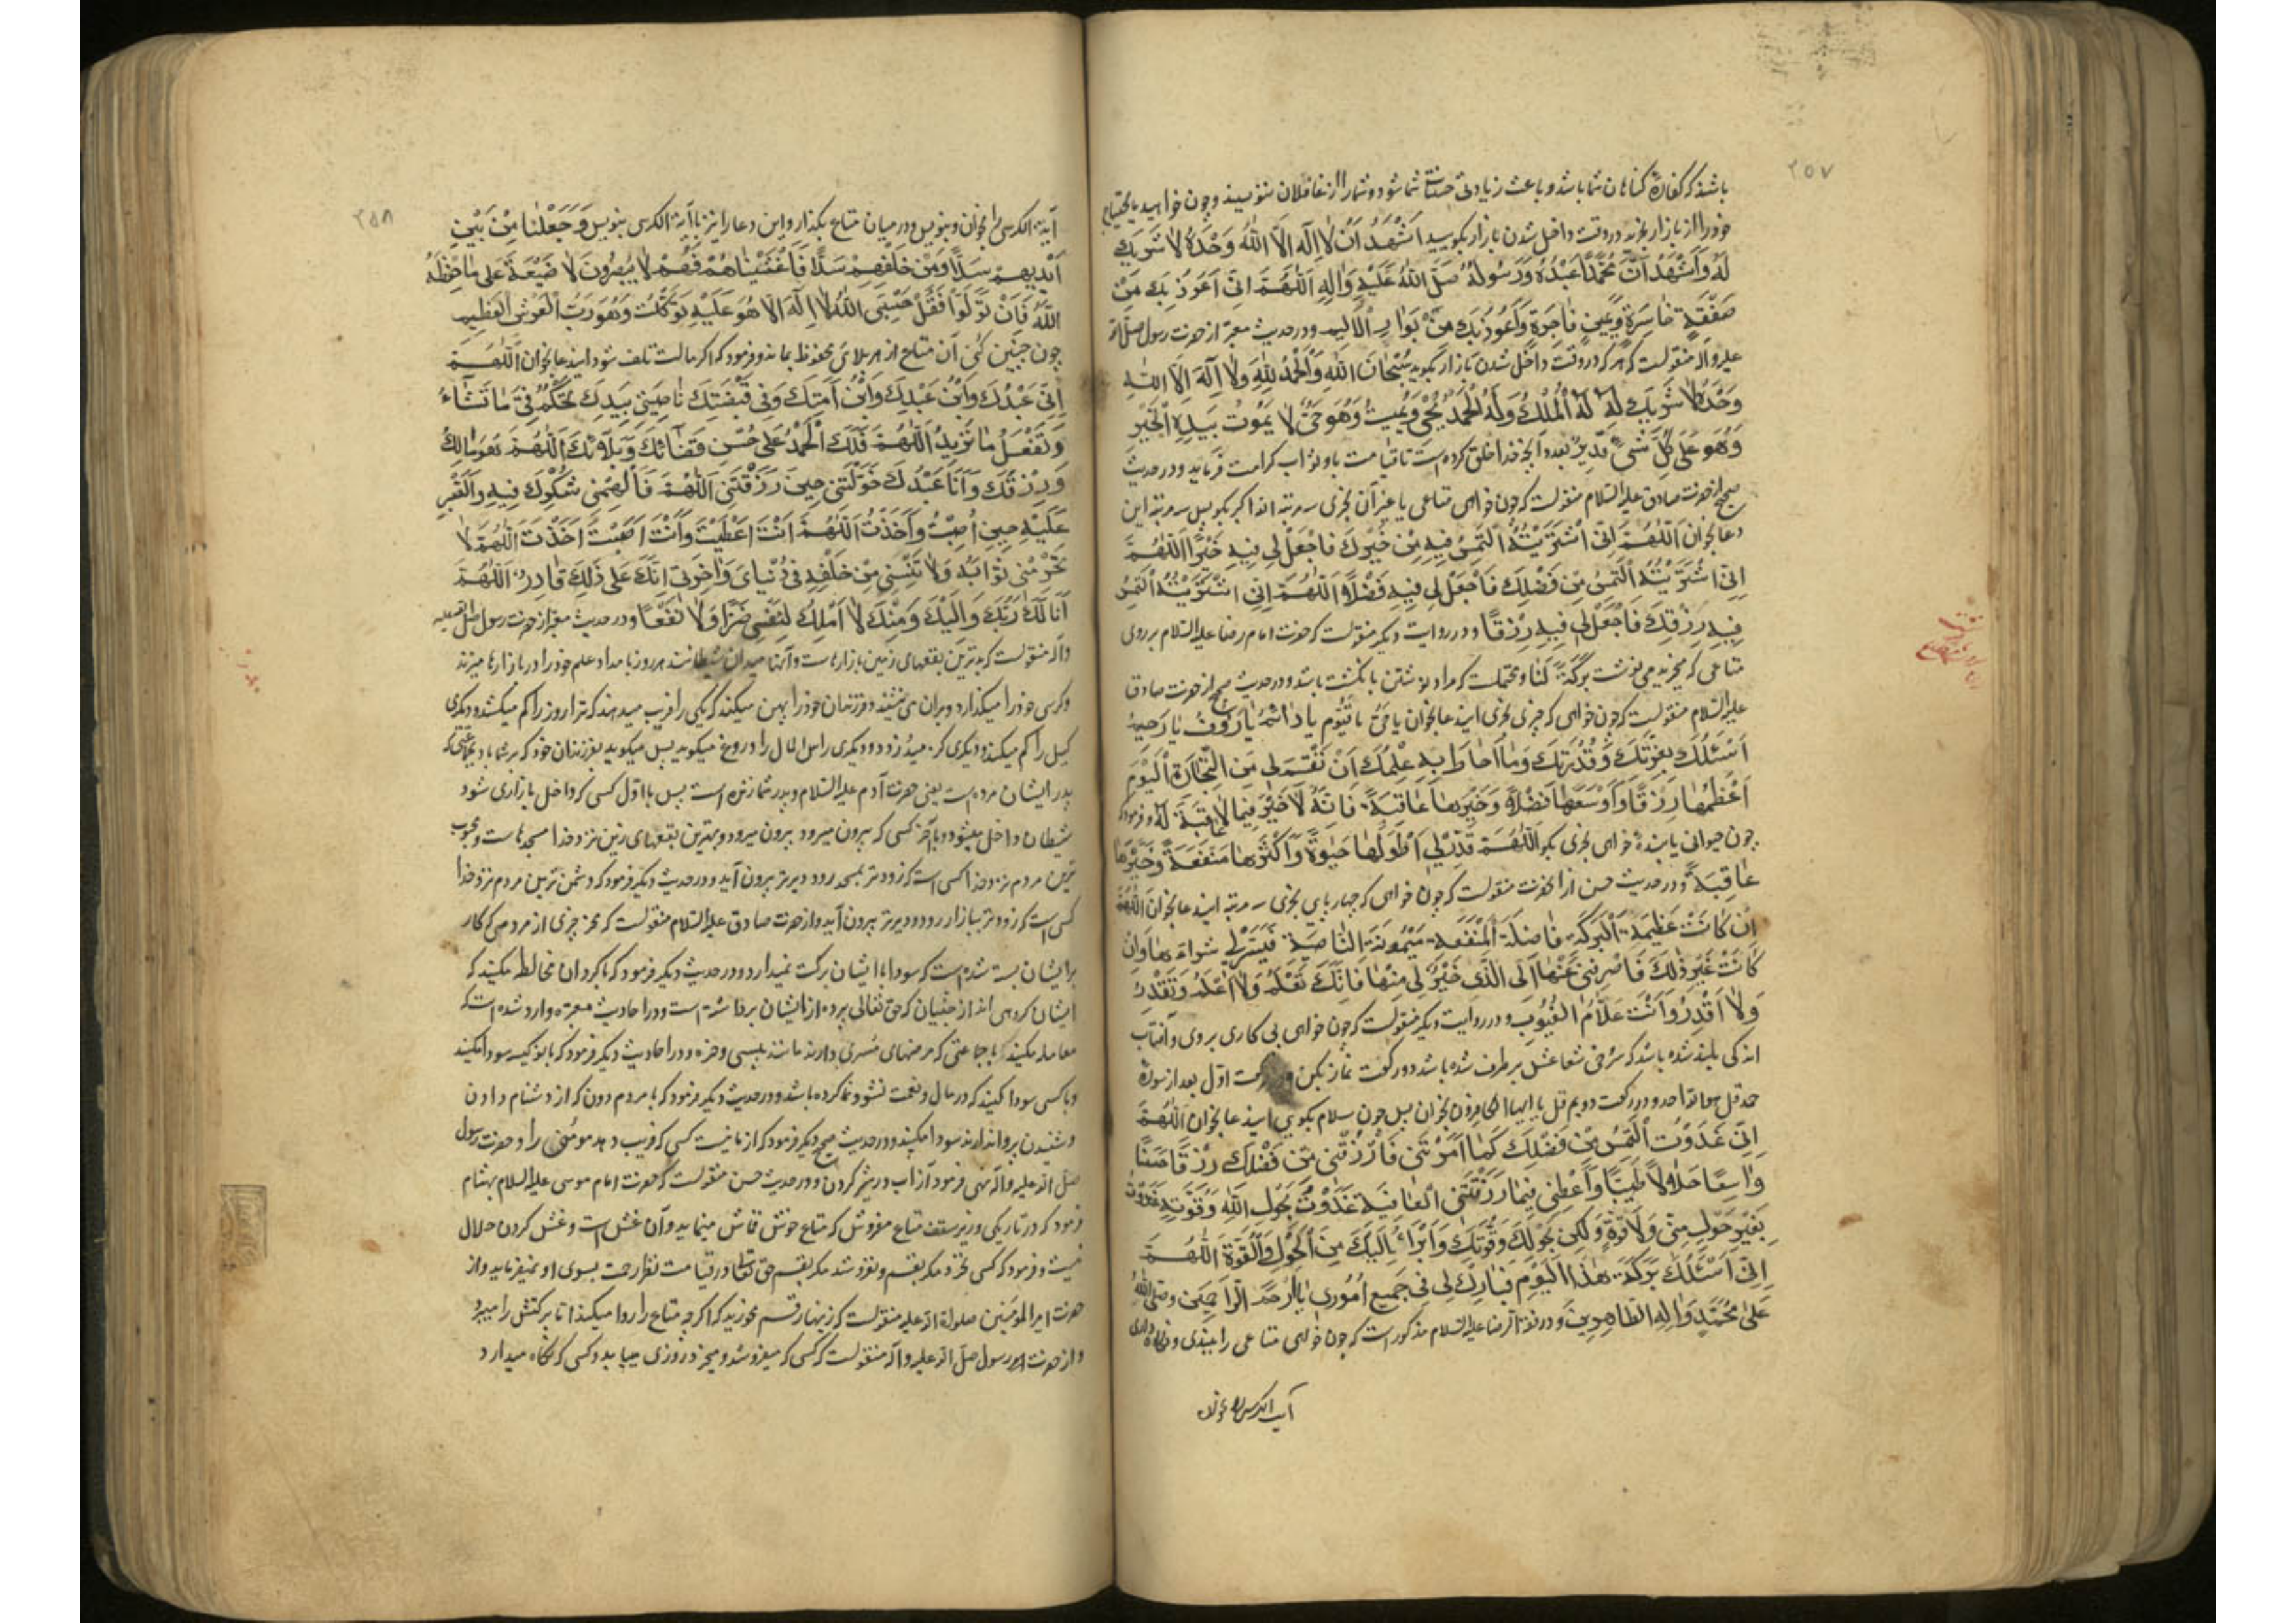 ۲۵۷
باشد که کفارهٔ گناهان شما باشد و باعث زیادتی حسنات شما شود و شما را از غافلان ننویسند و چون خواهید مایحتاج
خود را از بازار بخرید در وقت داخل شدن بازار بگویید اَشْهَدُ اَنْ لا اِلٰهَ اِلَّا اللّٰهُ وَحْدَهُ لا شَرِيكَ
لَهُ وَاَشْهَدُ اَنَّ مُحَمَّدًا عَبْدُهُ وَرَسُولُهُ صَلَّى اللّٰهُ عَلَيْهِ وَاٰلِهِ اَللّٰهُمَّ اِنّي اَعُوذُ بِكَ مِنْ
صَفْقَةٍ خاسِرَةٍ وَيَمينٍ فاجِرَةٍ وَاَعُوذُ بِكَ مِنْ بَوارِ الْاَيِّمِ ودر حدیث معتبر از حضرت رسول صلی الله
علیه وآله منقولست که هر که در وقت داخل شدن بازار بگوید سُبْحانَ اللّٰهِ وَالْحَمْدُ لِلّٰهِ وَلا اِلٰهَ اِلَّا اللّٰهُ
وَحْدَهُ لا شَرِيكَ لَهُ لَهُ الْمُلْكُ وَلَهُ الْحَمْدُ يُحْيي وَيُميتُ وَهُوَ حَيٌّ لا يَمُوتُ بِيَدِهِ الْخَيْرُ
وَهُوَ عَلى كُلِّ شَيْءٍ قَديرٌ بعدد آنچه خدا خلق کرده است تا قیامت باو ثواب کرامت فرماید ودر حدیث
صحیح از حضرت صادق علیه السلام منقولست که چون خواهی متاعی یا غیر آن بخری سه مرتبه الله اکبر بگو پس سه مرتبه این
دعا بخوان اَللّٰهُمَّ اِنِّي اشْتَرَيْتُهُ اَلْتَمِسُ فيهِ مِنْ خَيْرِكَ فَاجْعَلْ لي فيهِ خَيْرًا اَللّٰهُمَّ
اِنِّي اشْتَرَيْتُهُ اَلْتَمِسُ مِنْ فَضْلِكَ فَاجْعَلْ لي فيهِ فَضْلًا اَللّٰهُمَّ اِنِّي اشْتَرَيْتُهُ اَلْتَمِسُ
فيهِ رِزْقَكَ فَاجْعَلْ لي فيهِ رِزْقًا ودر روایت دیگر منقولست که حضرت امام رضا علیه السلام بر روی
متاعی که میخرید می نوشت بَرَكَةً لَنا و محتملست که مراد نوشتن بانگشت باشد ودر حدیث صحیح از حضرت صادق
علیه السلام منقولست که چون خواهی که چیزی بخری این دعا بخوان يا حَيُّ يا قَيُّومُ يا دائِمُ يا رَؤُفُ يا رَحيمُ
اَسْئَلُكَ بِعِزَّتِكَ وَقُدْرَتِكَ وَما اَحاطَ بِهِ عِلْمُكَ اَنْ تَقْسِمَ لي مِنَ التِّجارَةِ الْيَوْمَ
اَعْظَمَها رِزْقًا وَاَوْسَعَها فَضْلًا وَخَيْرَها عاقِبَةً فَاِنَّهُ لا خَيْرَ فيما لا عاقِبَةَ لَهُ و فرمود که
چون حیوانی یا بندهٔ خواهی بخری بگو اَللّٰهُمَّ قَدِّرْ لي اَطْوَلَها حَيٰوةً وَاَكْثَرَها مَنْفَعَةً وَخَيْرَها
عاقِبَةً ودر حدیث حسن از آنحضرت منقولست که چون خواهی که چهارپای بخری سه مرتبه این دعا بخوان اَللّٰهُمَّ
اِنْ كانَتْ عَظيمَةَ الْبَرَكَةِ فاضِلَةَ الْمَنْفَعَةِ مَيْمُونَةَ النّاصِيَةِ فَيَسِّرْ لي شِراءَها وَاِنْ
كانَتْ غَيْرَ ذٰلِكَ فَاصْرِفْني عَنْها اِلَى الَّذي خَيْرٌ لي مِنْها فَاِنَّكَ تَعْلَمُ وَلا اَعْلَمُ وَتَقْدِرُ
وَلا اَقْدِرُ وَاَنْتَ عَلّامُ الْغُيُوبِ ودر روایت دیگر منقولست که چون خواهی پی کاری بروی و آفتاب
اندکی بلند شده باشد که سرخی شعاعش برطرف شده باشد دو رکعت نماز بکن در رکعت اول بعد از سورهٔ
حمد قل هو الله احد ودر رکعت دویم قل یا ایها الکافرون بخوان پس چون سلام بگوئی این دعا بخوان اَللّٰهُمَّ
اِنِّي غَدَوْتُ اَلْتَمِسُ مِنْ فَضْلِكَ كَما اَمَرْتَني فَارْزُقْني مِنْ فَضْلِكَ رِزْقًا حَسَنًا
واسِعًا حَلالًا طَيِّبًا وَاَعْطِني فيما رَزَقْتَنِي الْعافِيَةَ غَدَوْتُ بِحَوْلِ اللّٰهِ وَقُوَّتِهِ غَدَوْتُ
بِغَيْرِ حَوْلٍ مِنّي وَلا قُوَّةٍ وَلٰكِنْ بِحَوْلِكَ وَقُوَّتِكَ وَاَبْرَاُ اِلَيْكَ مِنَ الْحَوْلِ وَالْقُوَّةِ اَللّٰهُمَّ
اِنِّي اَسْئَلُكَ بَرَكَةَ هٰذَا الْيَوْمِ فَبارِكْ لي في جَميعِ اُمُوري يا اَرْحَمَ الرّاحِمينَ وصَلَّى اللّٰهُ
عَلى مُحَمَّدٍ وَاٰلِهِ الطّاهِرينَ ودر فقه الرضا علیه السلام مذکور است که چون خواهی متاعی را ببندی و نگاه داری
آیة الکرسی را بخوان
۲۵۸
آیة الکرسی را بخوان و بنویس ودر میان متاع بگذار و این دعا را نیز با آیة الکرسی بنویس وَجَعَلْنا مِنْ بَيْنِ
اَيْديهِمْ سَدًّا وَمِنْ خَلْفِهِمْ سَدًّا فَاَغْشَيْناهُمْ فَهُمْ لا يُبْصِرُونَ لا ضَيْعَةَ عَلى ما حَفِظَهُ
اللّٰهُ فَاِنْ تَوَلَّوْا فَقُلْ حَسْبِيَ اللّٰهُ لا اِلٰهَ اِلّا هُوَ عَلَيْهِ تَوَكَّلْتُ وَهُوَ رَبُّ الْعَرْشِ الْعَظيمِ
چون چنین کنی آن متاع از هر بلای محفوظ بماند و فرمود که اگر مالت تلف شود این دعا بخوان اَللّٰهُمَّ
اِنِّي عَبْدُكَ وَابْنُ عَبْدِكَ وَابْنُ اَمَتِكَ وَفي قَبْضَتِكَ ناصِيَتي بِيَدِكَ تَحْكُمُ فيَّ ما تَشاءُ
وَتَفْعَلُ ما تُريدُ اَللّٰهُمَّ فَلَكَ الْحَمْدُ عَلى حُسْنِ قَضائِكَ وَبَلائِكَ اَللّٰهُمَّ هُوَ مالُكَ
وَرِزْقُكَ وَاَنَا عَبْدُكَ خَوَّلْتَني حينَ رَزَقْتَني اَللّٰهُمَّ فَاَلْهِمْني شُكْرَكَ فيهِ وَالصَّبْرَ
عَلَيْهِ حينَ اُصِبْتُ وَاَخَذْتَ اَللّٰهُمَّ اَنْتَ اَعْطَيْتَ وَاَنْتَ اَصَبْتَ اَخَذْتَ اَللّٰهُمَّ لا
تَحْرِمْني ثَوابَهُ وَلا تَنْسَني مِنْ خَلَفِهِ في دُنْيايَ وَاٰخِرَتي اِنَّكَ عَلى ذٰلِكَ قادِرٌ اَللّٰهُمَّ
اَنَا لَكَ وَبِكَ وَاِلَيْكَ وَمِنْكَ لا اَمْلِكُ لِنَفْسي ضَرًّا وَلا نَفْعًا ودر حدیث معتبر از حضرت رسول صلی الله علیه
وآله منقولست که بدترین بقعهای زمین بازارهاست و آنها میدان شیطانند هر روز بامداد علم خود را در بازارها میزند
و کرسی خود را میگذارد و بران می نشیند و فرزندان خود را پهن میکند که یکی را فریب میدهند که ترازو را کم میکشد و دیگری
کیل را کم میکند و دیگری کز میدزدد و دیگری راس المال را دروغ میگوید پس میگوید بفرزندان خود که بر شما باد بجماعتی که
پدر ایشان مرده است یعنی حضرت آدم علیه السلام و پدر شما زنده است پس با اول کسی که داخل بازاری شود
شیطان داخل میشود و با آخر کسی که بیرون میرود بیرون میرود و بهترین بقعهای زمین نزد خدا مسجدهاست و محبوب
ترین مردم نزد خدا کسی است که زودتر بمسجد رود و دیرتر بیرون آید ودر حدیث دیگر فرمود که دشمن ترین مردم نزد خدا
کسی است که زودتر ببازار رود و دیرتر بیرون آید و از حضرت صادق علیه السلام منقولست که مخر چیزی از مردمی که کار
بر ایشان بسته شده است که سودا با ایشان برکت نمیدارد ودر حدیث دیگر فرمود که با کردان مخالطه مکنید که
ایشان گروهی اند از جنیان که حق تعالی پرده از ایشان برداشته است ودر احادیث معتبره وارد شده است که
معامله مکنید با جماعتی که مرضهای مسری دارند مانند پیسی و خوره ودر احادیث دیگر فرمود که با نوکیسه سودا مکنید
و با کسی سودا کنید که در مال و نعمت نشو و نما کرده باشد ودر حدیث دیگر فرمود که با مردم دون که از دشنام دادن
و شنیدن پروا ندارند سودا مکنید ودر حدیث صحیح دیگر فرمود که از ما نیست کسی که فریب دهد مؤمنی را و حضرت رسول
صلی الله علیه وآله نهی فرمود از آب در شیر کردن ودر حدیث حسن منقولست که حضرت امام موسی علیه السلام بهشام
فرمود که در تاریکی و زیر سقف متاع مفروش که متاع خوش قماش مینماید و آن غش است و غش کردن حلال
نیست و فرمود که کسی نخرد مگر بقسم و نفروشد مگر بقسم حق تعالی در قیامت نظر رحمت بسوی او نمیفرماید و از
حضرت امیر المؤمنین صلوات الله علیه منقولست که زینهار قسم مخورید که اگر چه متاع را روا میکند اما برکتش را میبرد
و از حضرت رسول صلی الله علیه وآله منقولست که کسی که میفروشد و میخرد روزی مییابد و کسی که نگاه میدارد